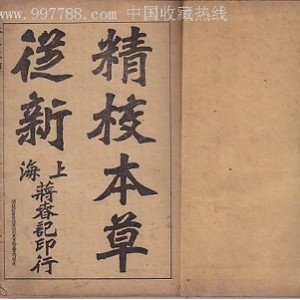 www.997788.com 中国收藏热线
精校本草
從新
上海
蔣春記印行